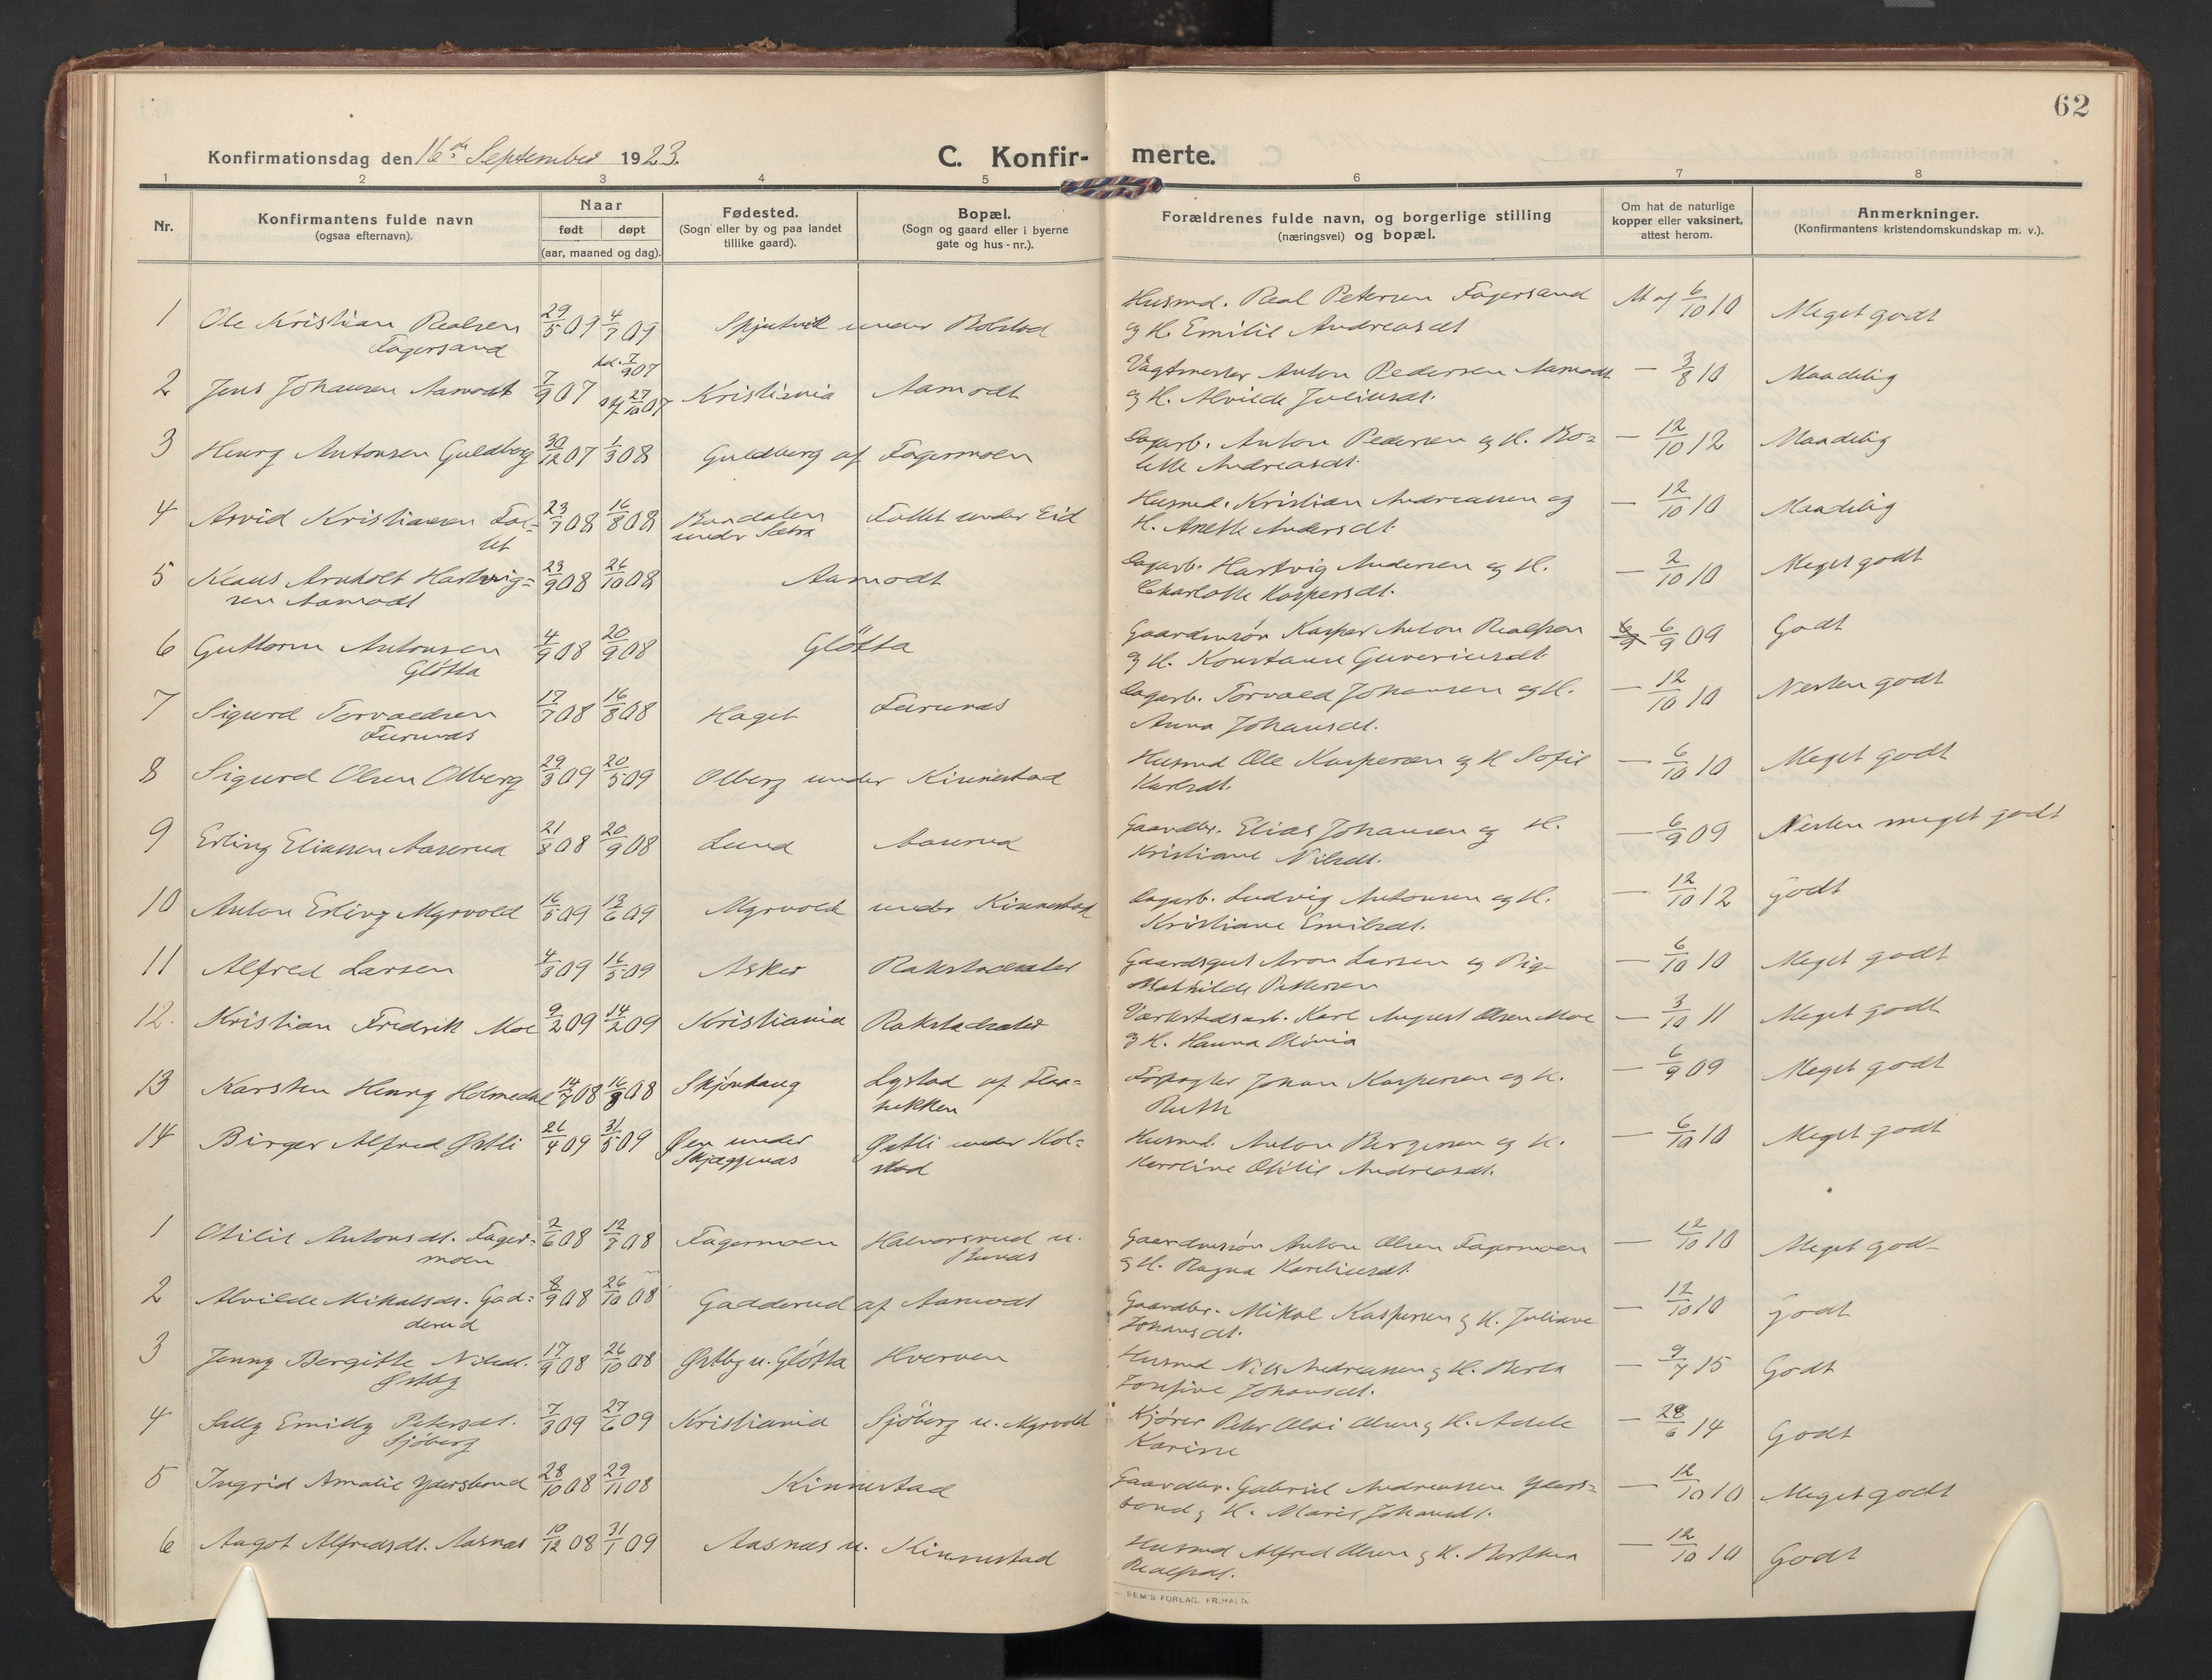 62
Konfirmationsdag den 16de September 1923.
C. Konfir- merte.
1 2 3 4 5 6 7 8
Nr.
Konfirmantens fulde navn
(ogsaa efternavn).
Naar
født døpt
(aar, maaned og dag).
Fødested.
(Sogn eller by og paa landet
tillike gaard).
Bopæl.
(Sogn og gaard eller i byerne
gate og hus-nr.).
Forældrenes fulde navn, og borgerlige stilling
(næringsvei) og bopæl.
Om hat de naturlige
kopper eller vaksinert,
attest herom.
Anmerkninger.
(Konfirmantens kristendomskundskap m. v.).
1 Ole Kristian Realsen 29/5 09 4/7 09 under Bolstad Husmd. Real Petersen Fagersand 6/10 10 Meget godt
Fagersand og H. Emilie Andreasdt
2 Jens Johansen Aamodt 7/9 07 hd. 7/9 07 27/10 07 Kristiania Aamodt Vagtmester Anton Pedersen Aamodt — 3/8 10 Maadelig
og H. Alvilde Juliusdt.
3 Henry Antonsen Guldberg 30/12 07 1/3 08 Guldberg af Fagermoen Dagarb. Anton Pedersen og H. Bo= — 12/10 12 Maadelig
lette Andreasdt.
4 Arvid Kristiansen Fol= 23/7 08 16/8 08 Follet under Eid Husmd. Kristian Andreassen og — 12/10 10 Maadelig
let under Sætra H. Anette Andersdt.
5 Klaus Arnholt Hartvig= 23/9 08 26/10 08 Aamodt Dagarb. Hartvig Andersen og H. — 2/10 10 Meget godt
sen Aamodt Charlotte Kaspersdt.
6 Guttorm Antonsen 4/9 08 20/9 08 Glötta Kasper Anton Realsen 6/9 09 Godt
Glötta og H. Konstanse Guveriusdt.
7 Sigurd Torvaldsen 17/7 08 16/8 08 Haget Furunæs Dagarb. Torvald Johansen og H. — 12/10 10 Nesten godt
Furunæs Anna Johansdt.
8 Sigurd Olsen Olberg 29/3 09 20/5 09 Olberg under Kinnestad Husmd Ole Kaspersen og H Sofie — 6/10 10 Meget godt
Karlsdt.
9 Erling Eliassen Aaserud 21/8 08 20/9 08 Lund Aaserud Gaardbr. Elias Johansen og H. — 6/9 09 Nesten meget godt
Kristiane Nilsdt.
10 Anton Erling Myrvold 16/5 09 13/6 09 Myrvold under Kinnestad Dagarb. Ludvig Antonsen og H. — 12/10 12 Godt
Kristiane Emilsdt.
11 Alfred Larsen 4/3 09 16/5 09 Asker Rakstadsæter Gaardsgut Aron Larsen og Pig. — 6/10 10 Meget godt
Mathilde Pettersen
12. Kristian Fredrik Moe 9/2 09 14/2 09 Kristiania Rakstadsæter Værkstedsarb. Karl August Olsen Moe — 3/10 11 Meget godt
og H. Hanna Olövia
13 Karsten Henry Holmedal 14/7 08 16/8 08 Skjönhaug Lystad af Flaa= Forpagter Johan Kaspersen og H. — 6/9 09 Meget godt
tekken Ruth
14 Birger Alfred Østli 26/4 09 31/5 09 Øen under Østli under Kol= Husmd. Anton Birgersen og H. — 6/10 10 Meget godt
Skjæggenæs stad Karoline Otilie Andreasdt.
1 Otilie Antonsdt. Fager= 2/6 08 12/7 08 Fagermoen Halvorsrud u. Anton Olsen Fagermoen — 12/10 10 Meget godt
moen Bunæs og H. Ragna Kareliusdt.
2 Alvilde Mikalsdt. Gad= 8/9 08 26/10 08 Gadderud af Aamodt Gaardbr. Mikal Kaspersen og H. Juliane — 12/10 10 Godt
derud Johansdt.
3 Jenny Bergitte Nilsdt. 17/9 08 26/10 08 Østby u. Glötta Hverven Husmd Nils Andreassen og H. Berta — 9/7 15 Godt
Østby Josefine Johansdt.
4 Sally Emilly Petersdt. 7/3 09 27/6 09 Kristiania Sjöberg u. Myrvold Kjører Peter Olai Olsen og H. Adele — 28/6 14 Godt
Sjöberg Karine
5 Ingrid Amalie Ydersbond 28/10 08 29/11 08 Kinnestad Gaardbr. Gabriel Andreassen Yders= — 12/10 10 Meget godt
bond og H. Marie Johansdt.
6 Aagot Alfredsdt. Aasnæs 10/12 08 31/1 09 Aasnæs u. Kinnestad Husmd Alfred Olsen og H. Martha — 12/10 10 Godt
Realsdt.
SEM'S FORLAG, FR.HALD.